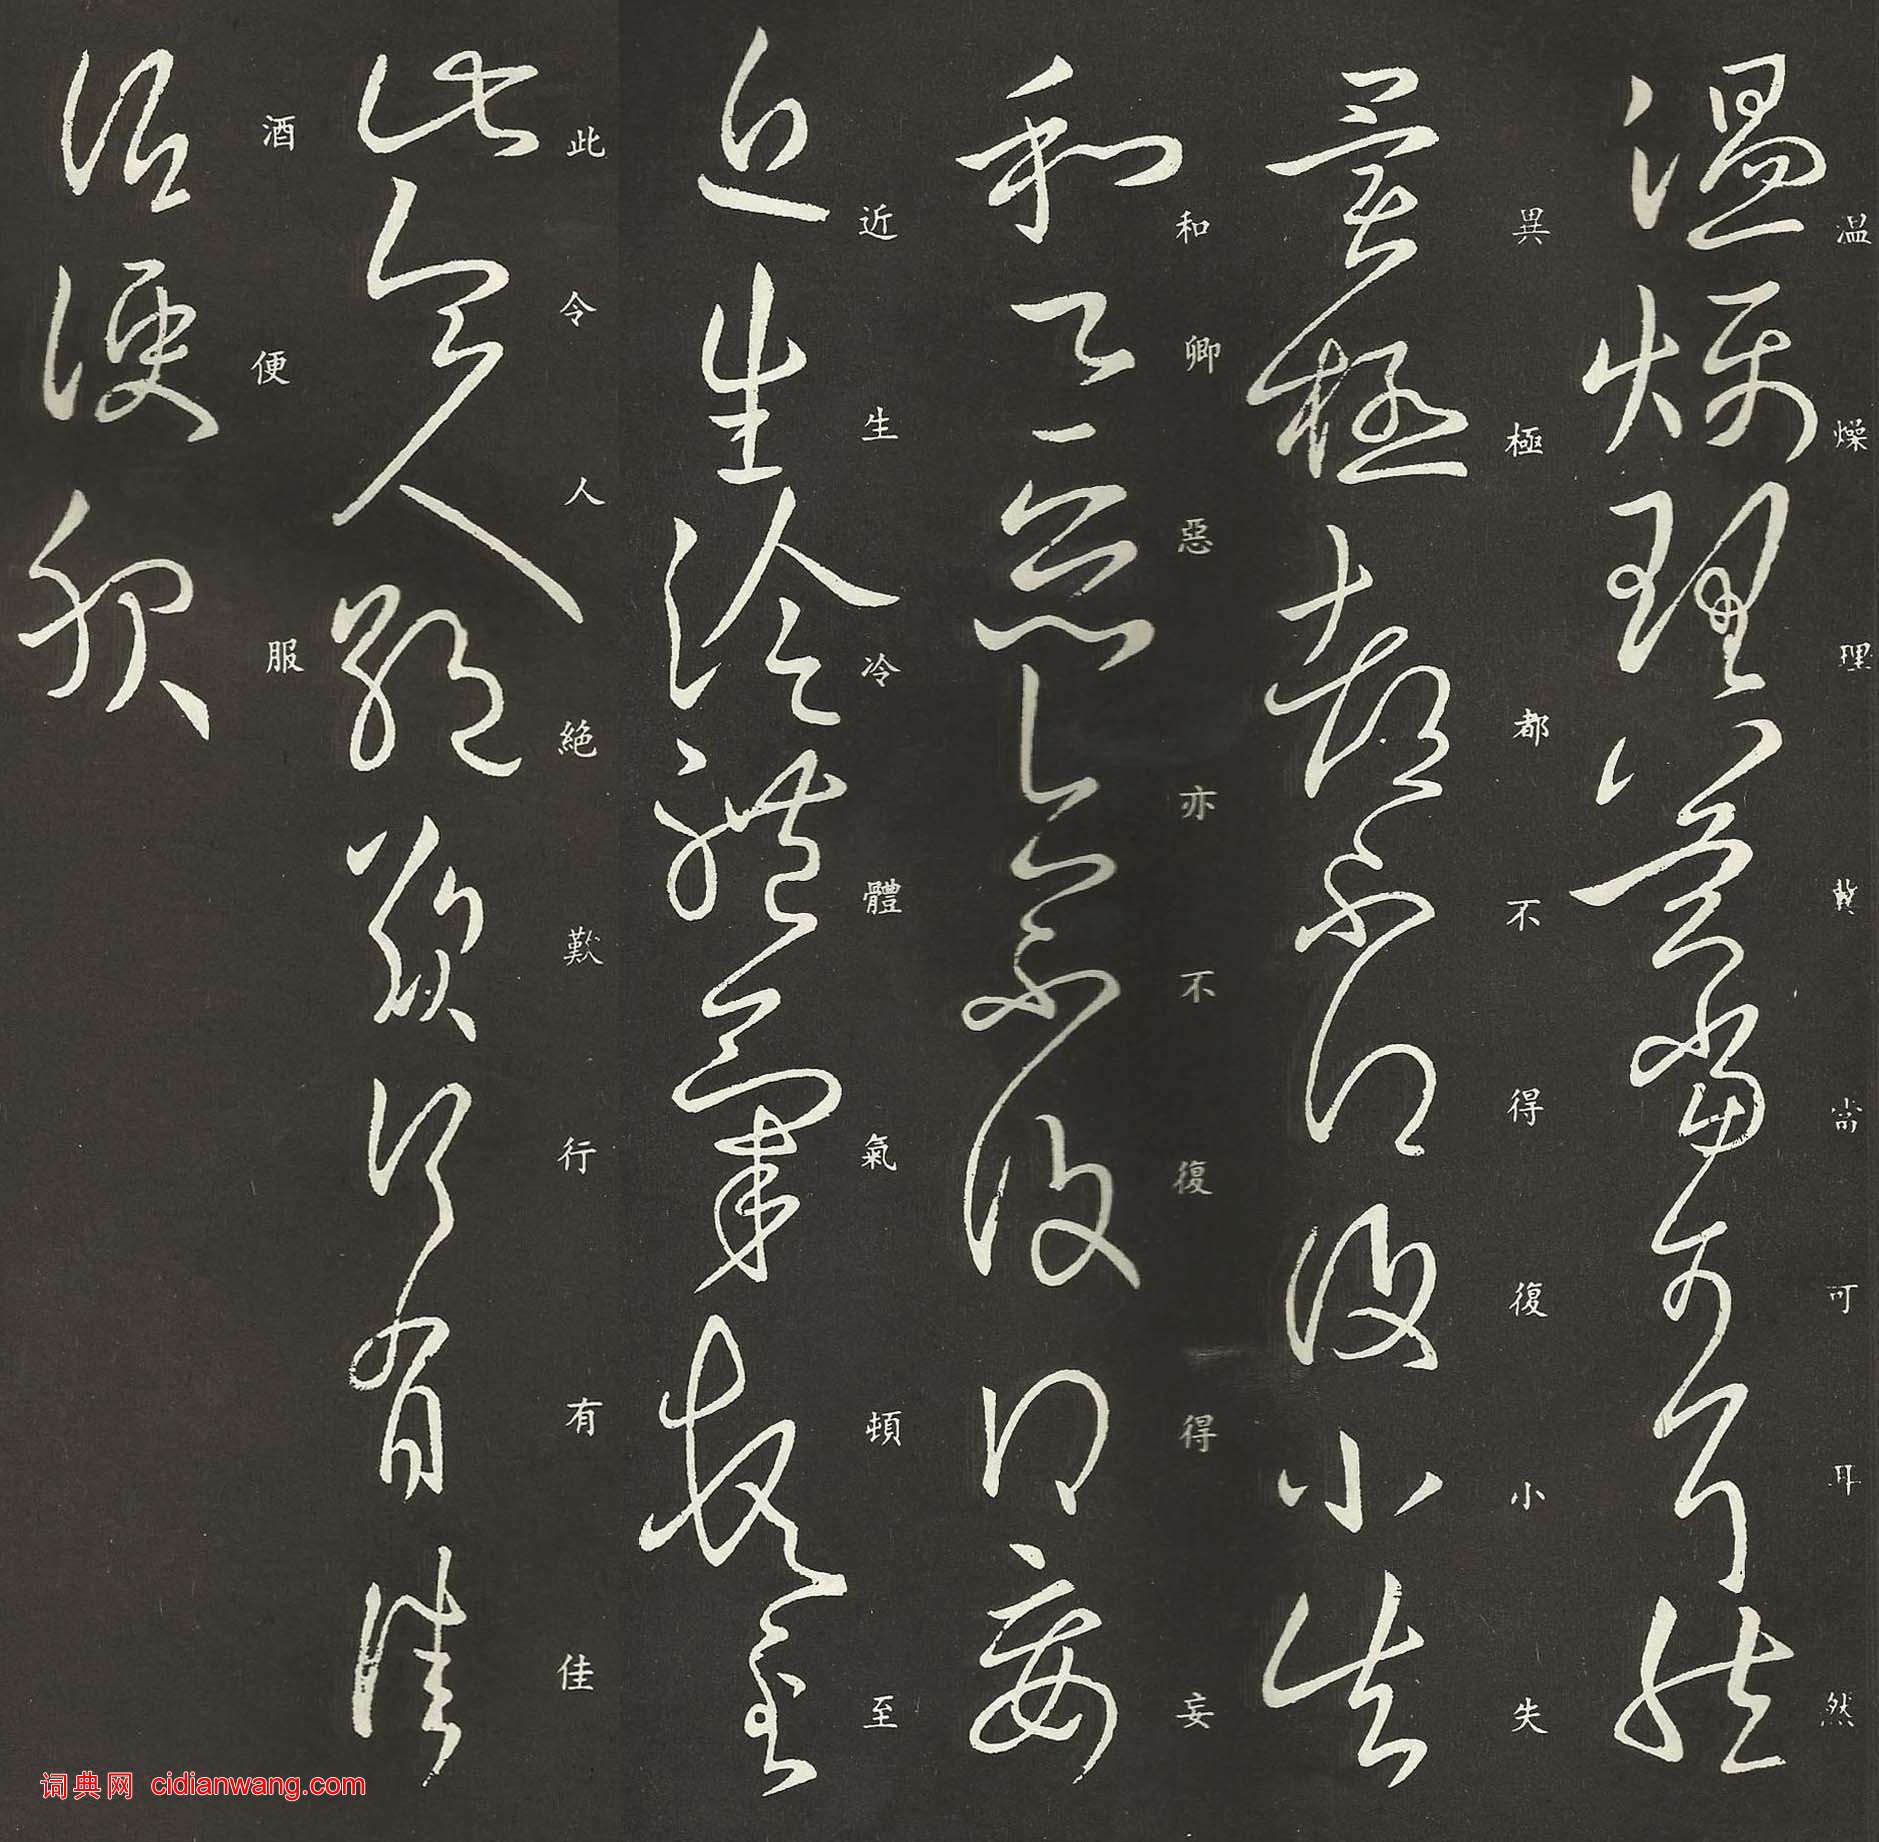 温燥理冀當可耳然
異極都不得復小失
和卿惡亦不復得妄
近生冷體氣頓至
此令人絕歎行有佳
酒便服
词典网 cidianwang.com